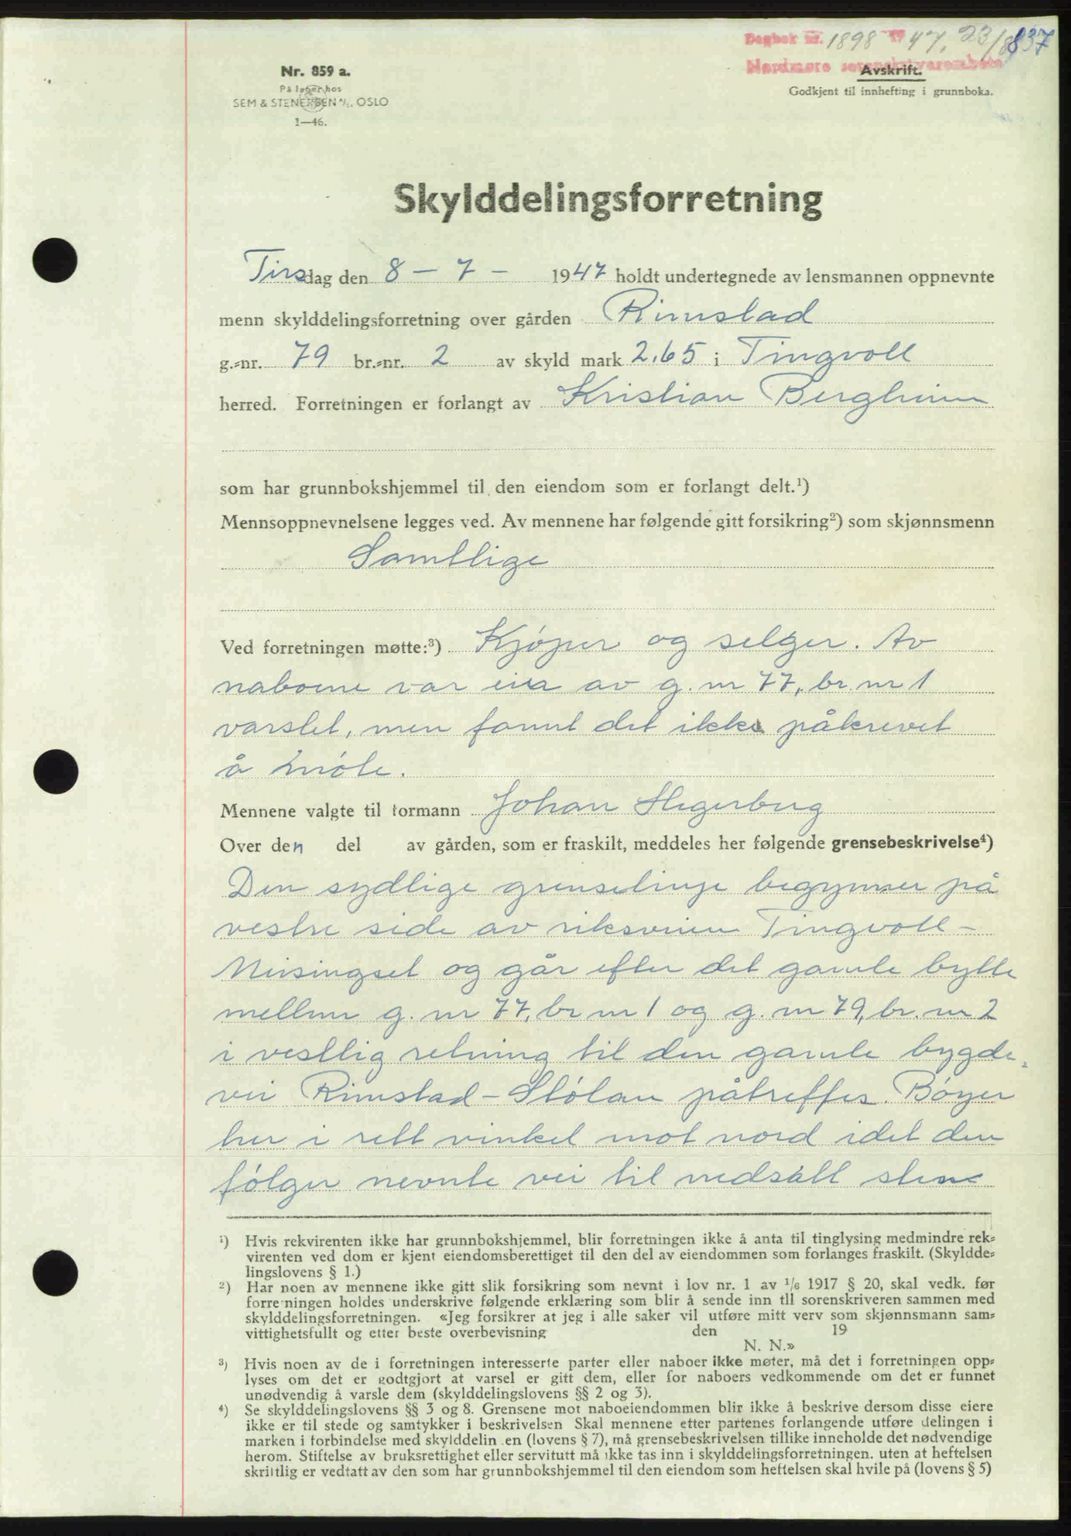 Dagbok nr. 1898 19 47, 23/8 837
Nordmøre sorenskriverembete
Nr. 859 a.
På lager hos
SEM & STENERSEN A/S. OSLO
1—46.
Avskrift.
Godkjent til innhefting i grunnboka.
Skylddelingsforretning
Tirsdag den 8 - 7 - 1947 holdt undertegnede av lensmannen oppnevnte
menn skylddelingsforretning over gården Rimstad
g.-nr. 79 br.-nr. 2 av skyld mark 2,65 i Tingvoll
herred. Forretningen er forlangt av Kristian Bergheim
som har grunnbokshjemmel til den eiendom som er forlangt delt.¹)
Mennsoppnevnelsene legges ved. Av mennene har følgende gitt forsikring²) som skjønnsmenn
Samtlige
Ved forretningen møtte:³) Kjøper og selger. Av
naboene var eia av g. nr 77, br. nr 1
varslet, men fannt det ikke påkrevet
å møte.
Mennene valgte til formann Johan Hegerberg
Over den del av gården, som er fraskilt, meddeles her følgende grensebeskrivelse⁴)
Den sydlige grenselinje begynner på
vestre side av riksveien Tingvoll -
Meisingset og går efter det gamle bytte
mellem g. nr 77, br nr 1 og g. nr 79, br. nr 2
i vestlig retning til den gamle bygde-
vei Rimstad - Stølan påtreffes. Bøyer
her i rett vinkel mot nord idet den
følger nevnte vei til nedsatt stene
¹) Hvis rekvirenten ikke har grunnbokshjemmel, blir forretningen ikke å anta til tinglysing medmindre rek-
virenten ved dom er kjent eiendomsberettiget til den del av eiendommen som forlanges fraskilt. (Skyldde-
lingslovens § 1.)
²) Har noen av mennene ikke gitt slik forsikring som nevnt i lov nr. 1 av 1/6 1917 § 20, skal vedk. før
forretningen holdes underskrive følgende erklæring som blir å sende inn til sorenskriveren sammen med
skylddelingsforretningen. «Jeg forsikrer at jeg i alle saker vil utføre mitt verv som skjønnsmann sam-
vittighetsfullt og etter beste overbevisning den 19
N. N.»
³) Hvis noen av de i forretningen interesserte parter eller naboer ikke møter, må det i forretningen opp-
lyses om det er godtgjort at varsel er gitt dem, eller for naboers vedkommende om det er funnet
unødvendig å varsle dem (skylddelingslovens §§ 2 og 3).
⁴) Se skylddelingslovens §§ 3 og 8. Grensene mot naboeiendommen blir ikke å beskrive dersom disse eiere
ikke er til stede og samtykker i beskrivelsen Skal mennene etter partenes forlangende utføre delingen i
marken i forbindelse med skylddelingen (lovens § 7), må grensebeskrivelsen tillike inneholde det nødvendige
herom. Stiftelse av bruksrettighet eller servitutt må ikke tas inn i skylddelingsforretningen. uten at heftelsen
skriftlig er vedtatt av den som har grunnbokshjemmel til den eiendom som heftelsen skal hvile på (lovens § 5)